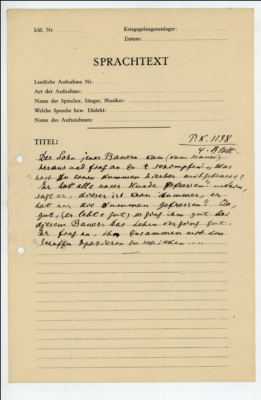 Lfd. Nr.
Kriegsgefangenenlager:
Datum:
SPRACHTEXT
Lautliche Aufnahme Nr.
Art der Aufnahme:
Name der Sprecher, Sänger, Musiker:
Welche Sprache bzw. Dialekt:
Name des Aufzeichners:
TITEL:
P.K. 1138
4. Blatt.
Der Sohn jenes Bauern kam (vom Hause)
heraus und fing an zu schimpfen: „Was
hast du einen Dummen hierher mitgebracht?
Er hat alle unser Hunde gefressen!" „Nein,
sagt er, dieser ist kein Dummer, er
hat nur die Dummen gefressen!" Ja,
gut, (er lebte gut) es ging ihm gut bei
diesem Bauern das Leben verging gut.
Er fing an, zusammen mit den
Schafen spazieren zu